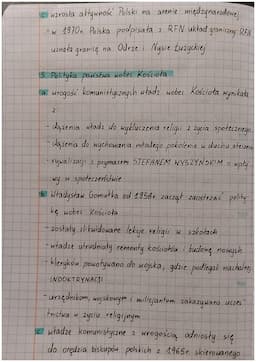 c wzrosła aktywność Polski na arenie międzynarodowej
- w 1970r. Polska podpisała z RFN układ graniczny. RFN
uznała granicę na Odrze i Nysie Łużyckiej
5. Polityka państwa wobec Kościoła
a wrogość komunistycznych władz wobec Kościoła wynikała
z
- dążenia władz do wykluczenia religii z życia społecznego
- dążenia do wychowania młodego pokolenia w duchu ateizmu
- rywalizacji z prymasem STEFANEM WYSZYŃSKIM o wpły-
wy w społeczeństwie
b Władysław Gomułka od 1958r. zaczął zaostrzać polity-
kę wobec Kościoła
- zostały zlikwidowane lekcje religii w szkołach
- władze utrudniały remonty kościołów i budowę nowych
- kleryków powoływano do wojska, gdzie podlegali nachalnej
INDOKTRYNACJI
- urzędnikom, wojskowym i milicjantom zakazywano uczes-
tnictwa w życiu religijnym
c władze komunistyczne z wrogością odniosły się
do orędzia biskupów polskich z 1965r. skierowanego